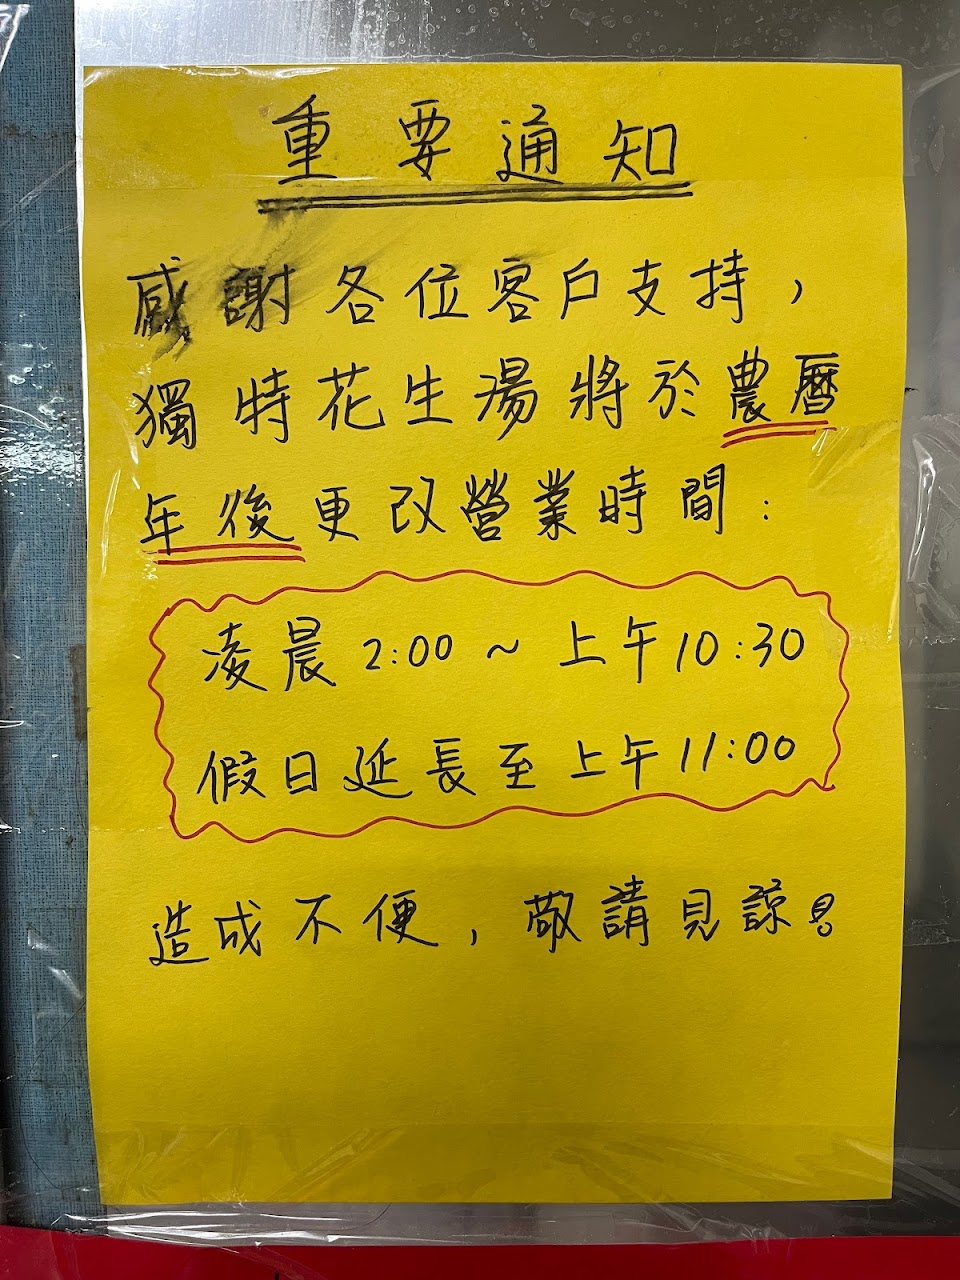 重要通知
感謝各位客戶支持，
獨特花生湯將於農曆
年後更改營業時間：
凌晨2:00～上午10:30
假日延長至上午11:00
造成不便，敬請見諒！